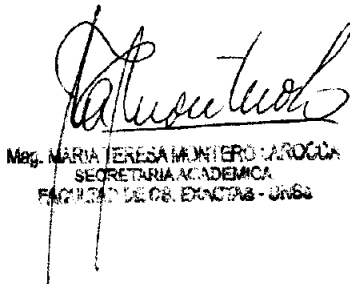 Mag. MARIA TERESA MONTERO LAROCCA
SECRETARIA ACADEMICA
FACULTAD DE CS. EXACTAS - UNSa